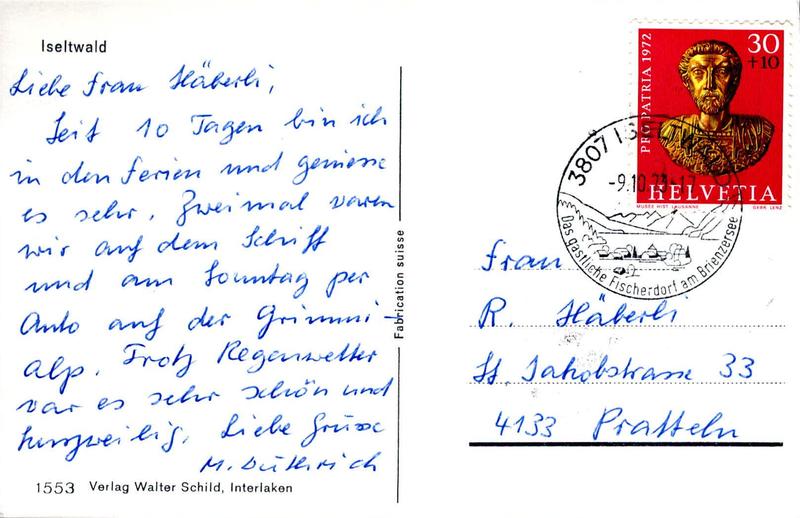 Iseltwald
Liebe Frau Häberli,
Seit 10 Tagen bin ich
in den Ferien und geniesse
es sehr. Zweimal waren
wir auf dem Schiff
und am Sonntag per
Auto auf der Grimmi-
alp. Trotz Regenwetter
war es sehr schön und
kurzweilig. Liebe Grüsse
M.
1553 Verlag Walter Schild, Interlaken
Fabrication suisse
PRO PATRIA 1972
30
+10
HELVETIA
MUSEE HIST. LAUSANNE GERR. LENZ
3807 ISELTWALD
-9.10.73-17
Das gastliche Fischerdorf am Brienzersee
Frau
R. Häberli
St. Jakobstrasse 33
4133 Pratteln